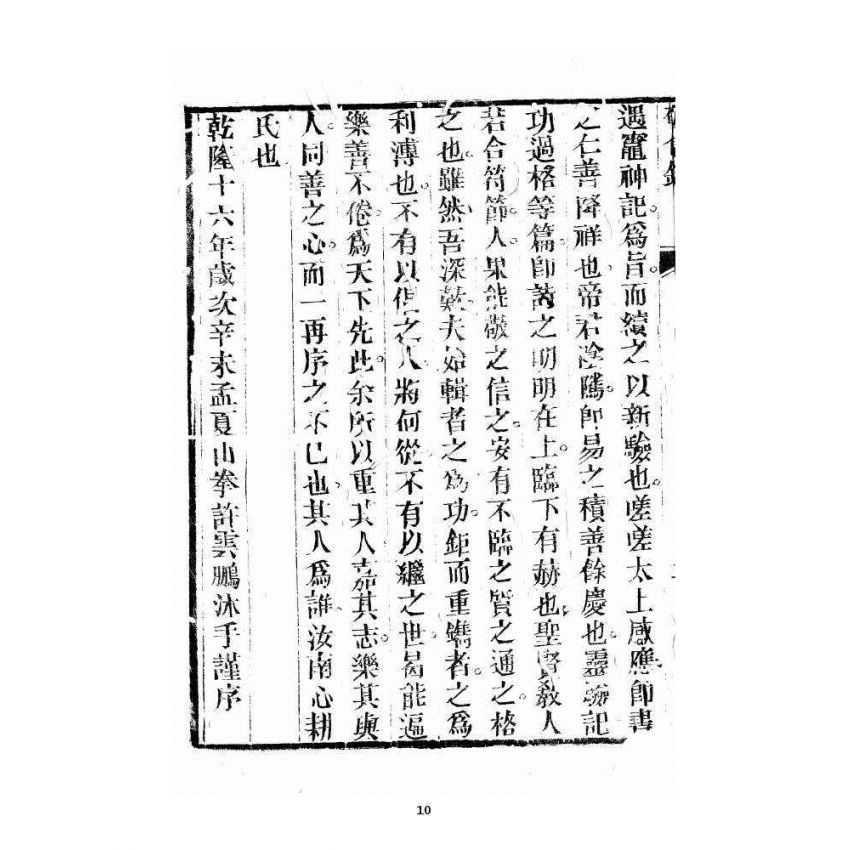 遇竈神記爲旨而續之以新驗也嗟嗟太上感應卽書
之仁善降祥也帝君陰騭卽易之積善餘慶也靈驗記
功過格等篇卽詩之明明在上臨下有赫也聖賢敎人
若合符節人果能敬之信之安有不臨之質之通之格
之也雖然吾深歎夫始輯者之爲功鉅而重鐫者之爲
利溥也不有以倡之人將何從不有以繼之世曷能遍
樂善不倦爲天下先此余所以重其人嘉其志樂其與
人同善之心而一再序之不已也其人爲誰汝南心耕
氏也
乾隆十六年歲次辛未孟夏山拳許雲鵬沐手謹序
10